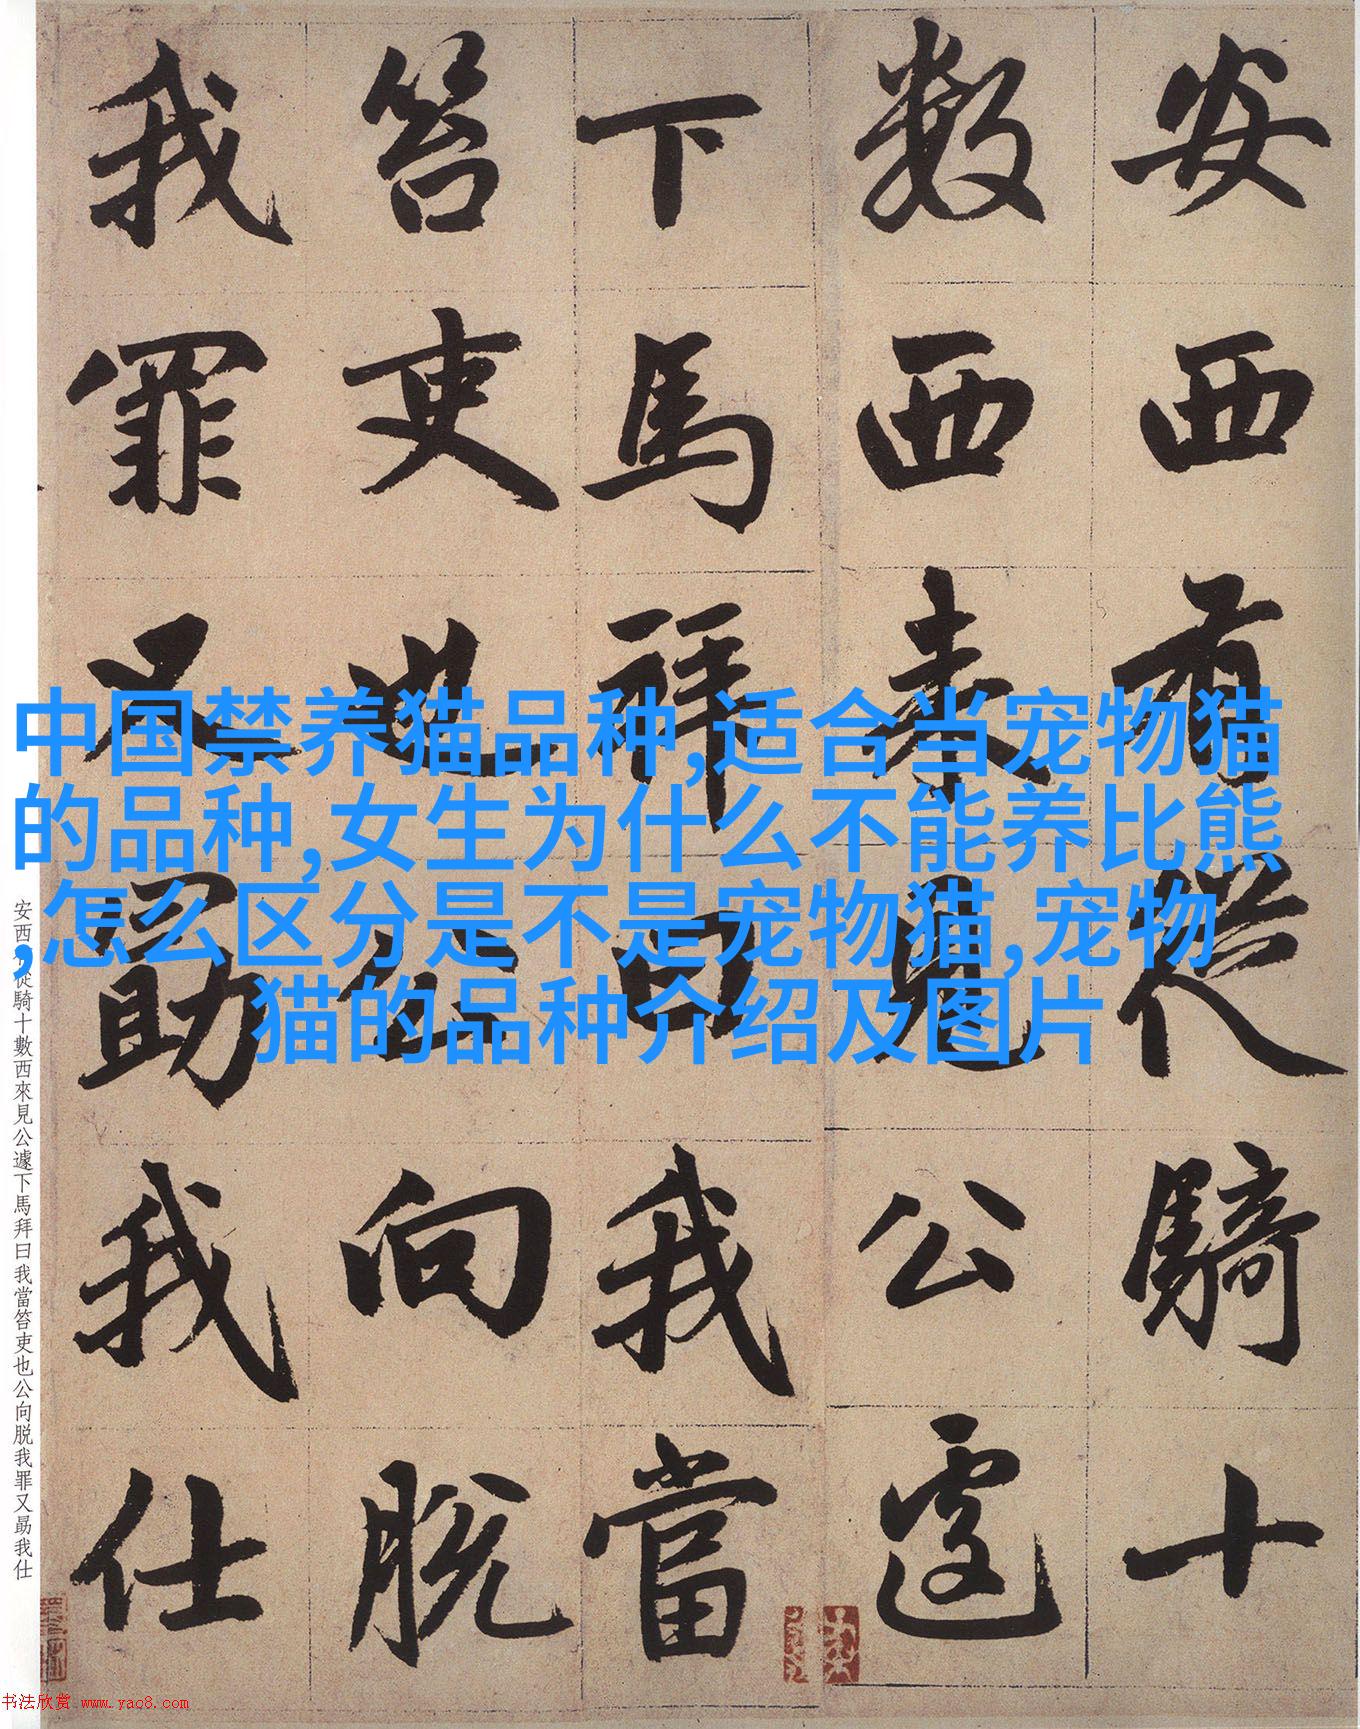 安西有從騎十
數西來見公遽
下馬拜曰我當
笞吏也公向脫
我罪又勗我仕
中国禁养猫品种,适合当宠物猫
的品种,女生为什么不能养比熊
,怎么区分是不是宠物猫,宠物
猫的品种介绍及图片
安西從騎十數西來見公遽下馬拜曰我當笞吏也公向脱我罪又勗我仕
书法欣赏 www.yac8.com